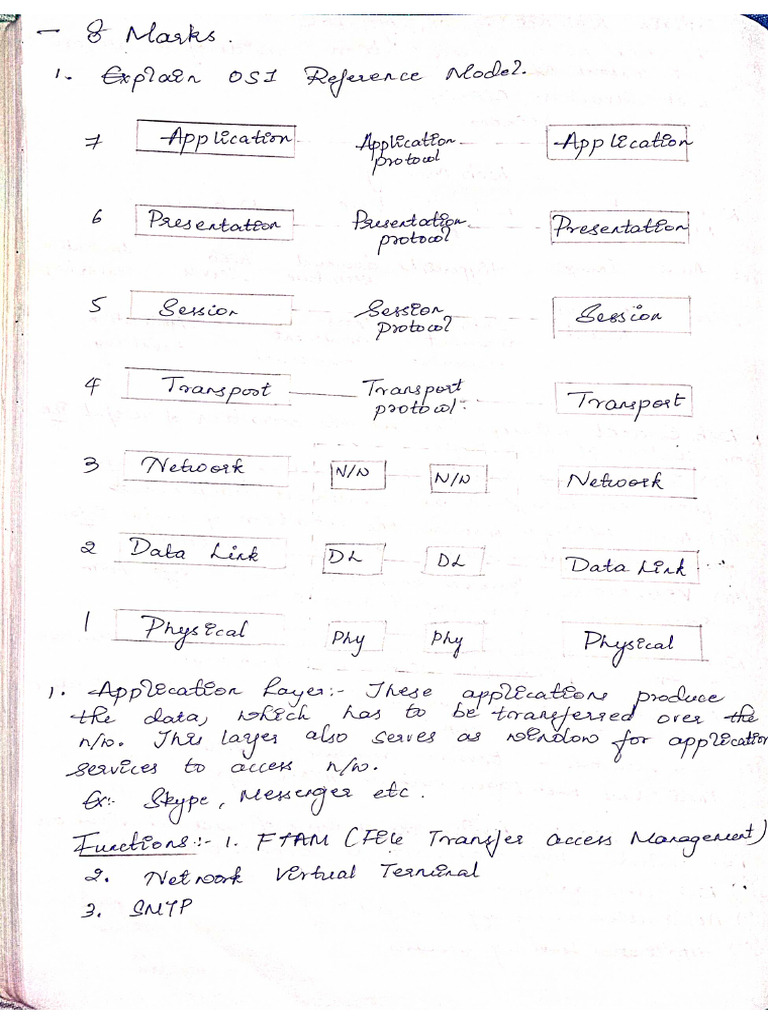 - 8 Marks.
1. Explain OSI Reference Model.
7 Application Application protocol Application
6 Presentation Presentation protocol Presentation
5 Session Session protocol Session
4 Transport Transport protocol Transport
3 Network N/W N/W Network
2 Data Link DL DL Data Link
1 Physical Phy Phy Physical
1. Application Layer:- These applications produce
the data, which has to be transferred over the
n/w. This layer also serves as window for application
services to access n/w.
Ex:- Skype, Messenger etc.
Functions:- 1. FTAM (File Transfer access Management)
2. Network Virtual Terminal
3. SMTP